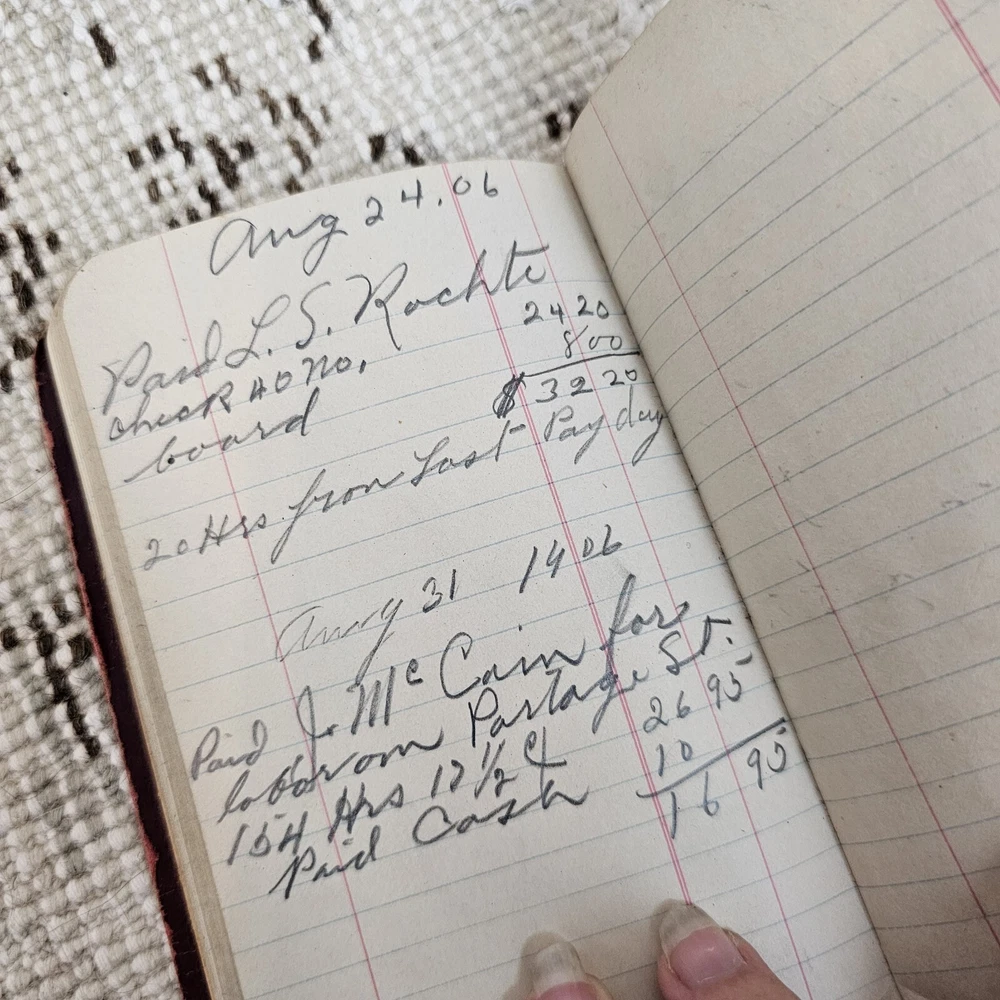 Aug 24.06
Paid L. S. Rochte
check 40 no. 24 20
board 8 00
$ 32 20
20 Hrs from Last Pay day
Aug 31 1906
Paid J. Mc Cain for
labor on Portage St.
154 Hrs 17 1/2 ¢ 26 95
Paid Cash 10
16 95